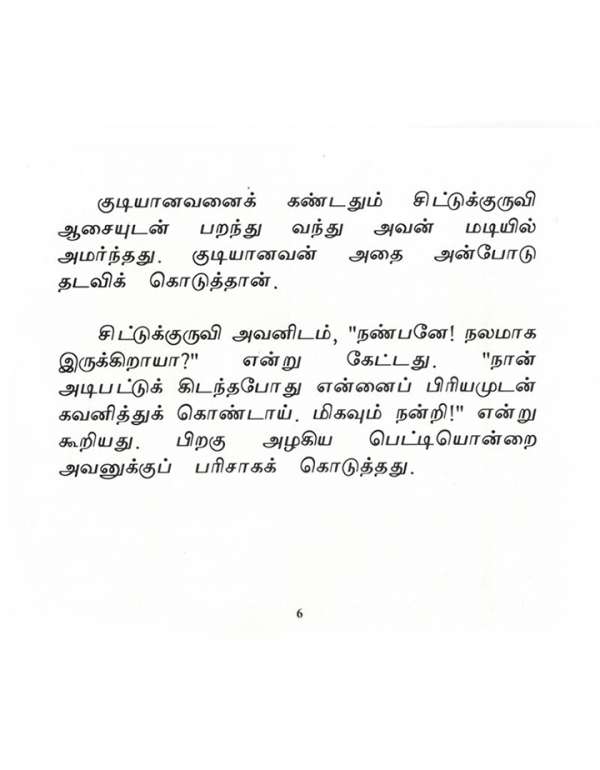 குடியானவனைக் கண்டதும் சிட்டுக்குருவி
ஆசையுடன் பறந்து வந்து அவன் மடியில்
அமர்ந்தது. குடியானவன் அதை அன்போடு
தடவிக் கொடுத்தான்.
சிட்டுக்குருவி அவனிடம், "நண்பனே! நலமாக
இருக்கிறாயா?" என்று கேட்டது. "நான்
அடிபட்டுக் கிடந்தபோது என்னைப் பிரியமுடன்
கவனித்துக் கொண்டாய். மிகவும் நன்றி!" என்று
கூறியது. பிறகு அழகிய பெட்டியொன்றை
அவனுக்குப் பரிசாகக் கொடுத்தது.
6